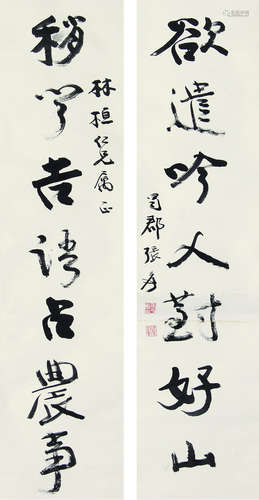 欲遣吟人對好山
蜀郡張爰
林桓仁兄属正
稍聞吉語占農事